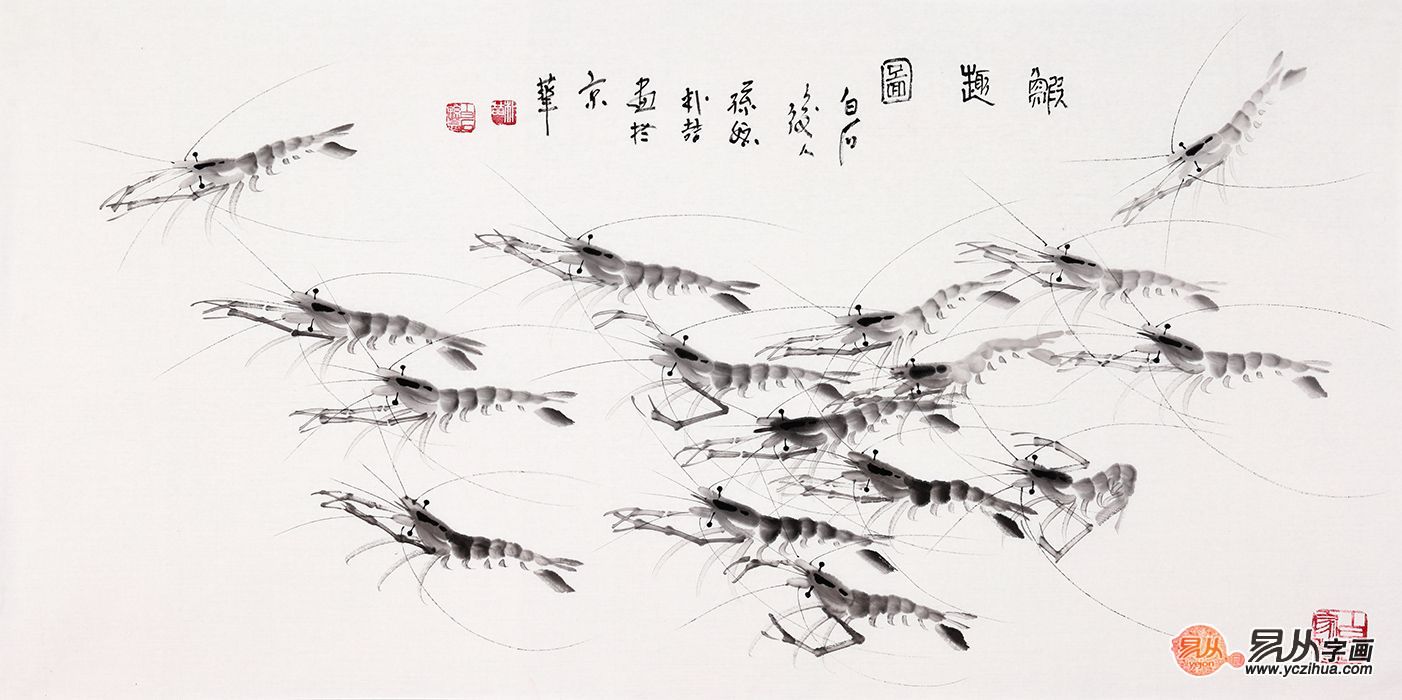 鰕
趣
圖
白石
後人
孫媳
朴喆
畫於
京
華
易从
易从字画
www.yczihua.com